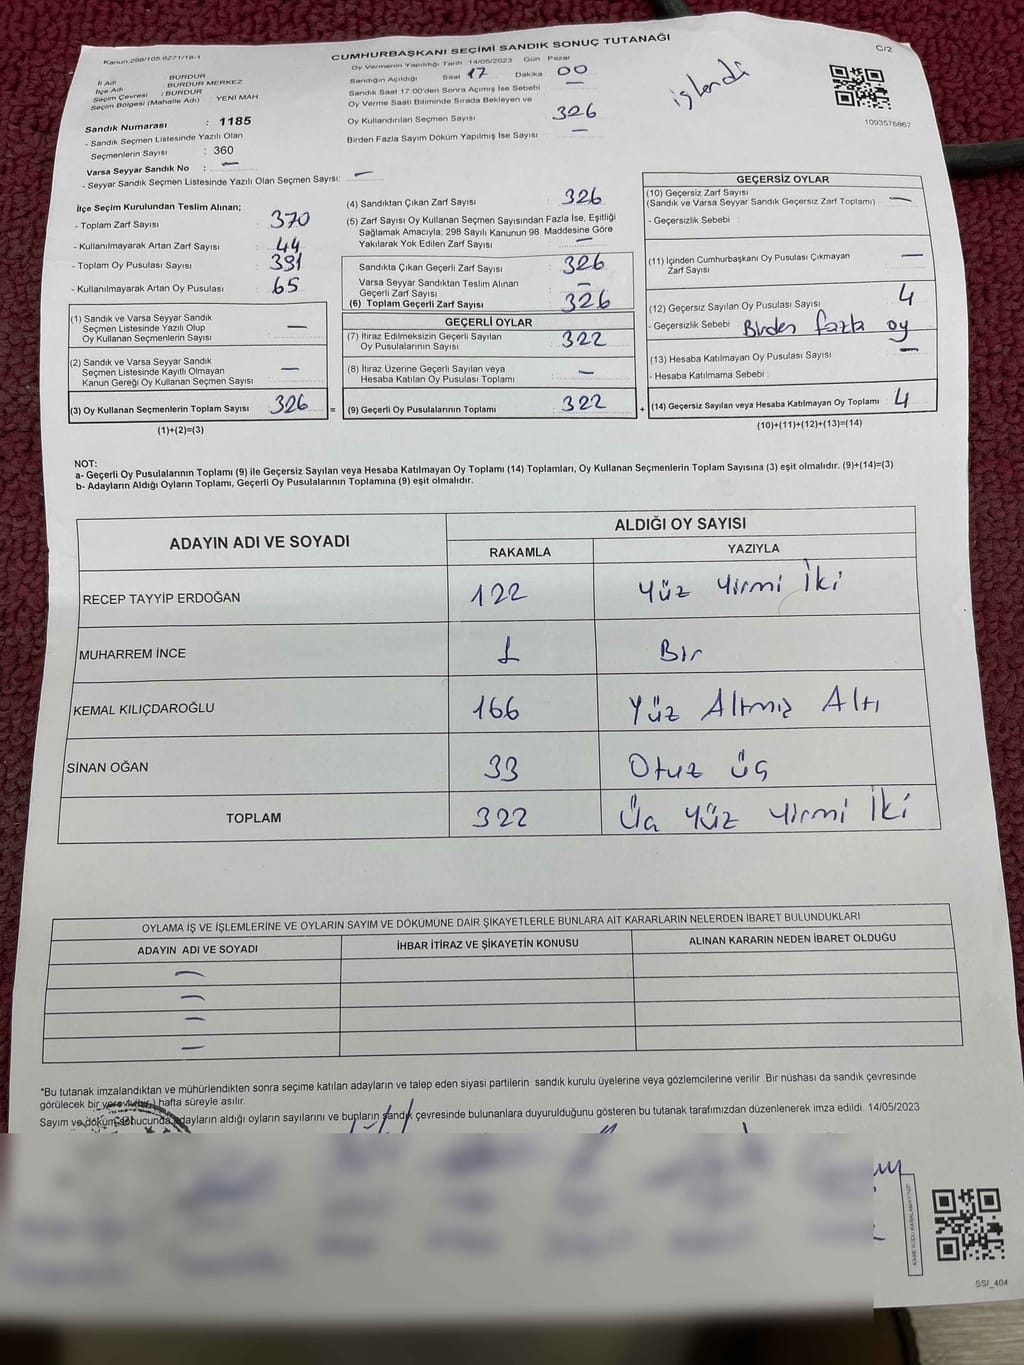 Kanun 298/105 6271/18-1
CUMHURBAŞKANI SEÇİMİ SANDIK SONUÇ TUTANAĞI
C/2
İl Adı BURDUR
İlçe Adı BURDUR MERKEZ
Seçim Çevresi : BURDUR
Seçim Bölgesi (Mahalle Adı) : YENİ MAH
Sandık Numarası : 1185
- Sandık Seçmen Listesinde Yazılı Olan
Seçmenlerin Sayısı : 360
Varsa Seyyar Sandık No : —
- Seyyar Sandık Seçmen Listesinde Yazılı Olan Seçmen Sayısı: —
Oy Vermenin Yapıldığı Tarih : 14/05/2023 Gün Pazar
Sandığın Açıldığı Saat 17 Dakika 00
Sandık Saat 17 00'den Sonra Açımış İse Sebebi —
Oy Verme Saati Bitiminde Sırada Bekleyen ve
Oy Kullandırılan Seçmen Sayısı 326
Birden Fazla Sayım Döküm Yapılmış İse Sayısı —
işlendi
1093576867
İlçe Seçim Kurulundan Teslim Alınan;
- Toplam Zarf Sayısı : 370
- Kullanılmayarak Artan Zarf Sayısı : 44
- Toplam Oy Pusulası Sayısı : 391
- Kullanılmayarak Artan Oy Pusulası : 65
(1) Sandık ve Varsa Seyyar Sandık
Seçmen Listesinde Yazılı Olup
Oy Kullanan Seçmenlerin Sayısı —
(2) Sandık ve Varsa Seyyar Sandık
Seçmen Listesinde Kayıtlı Olmayan
Kanun Gereği Oy Kullanan Seçmen Sayısı —
(3) Oy Kullanan Seçmenlerin Toplam Sayısı 326
(1)+(2)=(3)
=
(4) Sandıktan Çıkan Zarf Sayısı : 326
(5) Zarf Sayısı Oy Kullanan Seçmen Sayısından Fazla İse, Eşitliği
Sağlamak Amacıyla; 298 Sayılı Kanunun 98. Maddesine Göre
Yakılarak Yok Edilen Zarf Sayısı : —
Sandıkta Çıkan Geçerli Zarf Sayısı : 326
Varsa Seyyar Sandıktan Teslim Alınan
Geçerli Zarf Sayısı —
(6) Toplam Geçerli Zarf Sayısı : 326
GEÇERLİ OYLAR
(7) İtiraz Edilmeksizin Geçerli Sayılan
Oy Pusulalarının Sayısı 322
(8) İtiraz Üzerine Geçerli Sayılan veya
Hesaba Katılan Oy Pusulası Toplamı —
(9) Geçerli Oy Pusulalarının Toplamı 322
+
GEÇERSİZ OYLAR
(10) Geçersiz Zarf Sayısı
(Sandık ve Varsa Seyyar Sandık Geçersiz Zarf Toplamı) —
- Geçersizlik Sebebi :
(11) İçinden Cumhurbaşkanı Oy Pusulası Çıkmayan
Zarf Sayısı —
(12) Geçersiz Sayılan Oy Pusulası Sayısı 4
- Geçersizlik Sebebi : Birden fazla oy
(13) Hesaba Katılmayan Oy Pusulası Sayısı —
- Hesaba Katılmama Sebebi :
(14) Geçersiz Sayılan veya Hesaba Katılmayan Oy Toplamı 4
(10)+(11)+(12)+(13)=(14)
NOT:
a- Geçerli Oy Pusulalarının Toplamı (9) ile Geçersiz Sayılan veya Hesaba Katılmayan Oy Toplamı (14) Toplamları, Oy Kullanan Seçmenlerin Toplam Sayısına (3) eşit olmalıdır. (9)+(14)=(3)
b- Adayların Aldığı Oyların Toplamı, Geçerli Oy Pusulalarının Toplamına (9) eşit olmalıdır.
ADAYIN ADI VE SOYADI
ALDIĞI OY SAYISI
RAKAMLA YAZIYLA
RECEP TAYYİP ERDOĞAN 122 Yüz Yirmi İki
MUHARREM İNCE 1 Bir
KEMAL KILIÇDAROĞLU 166 Yüz Altmış Altı
SİNAN OĞAN 33 Otuz üç
TOPLAM 322 Üç Yüz Yirmi İki
OYLAMA İŞ VE İŞLEMLERİNE VE OYLARIN SAYIM VE DÖKÜMÜNE DAİR ŞİKAYETLERLE BUNLARA AİT KARARLARIN NELERDEN İBARET BULUNDUKLARI
ADAYIN ADI VE SOYADI İHBAR İTİRAZ VE ŞİKAYETİN KONUSU ALINAN KARARIN NEDEN İBARET OLDUĞU
—
—
—
—
*Bu tutanak imzalandıktan ve mühürlendikten sonra seçime katılan adayların ve talep eden siyasi partilerin sandık kurulu üyelerine veya gözlemcilerine verilir .Bir nüshası da sandık çevresinde
görülecek bir yere (bir ) hafta süreyle asılır.
Sayım ve döküm sonucunda adayların aldığı oyların sayılarını ve bunların sandık çevresinde bulunanlara duyurulduğunu gösteren bu tutanak tarafımızdan düzenlenerek imza edildi. 14/05/2023
SSI_404